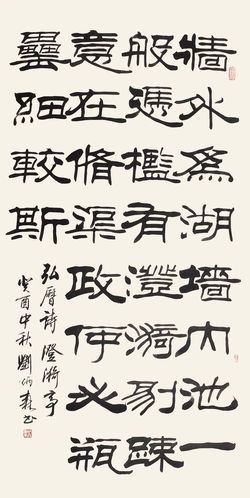 牆外為湖墻内池一
般馮檻有澄漪剔踈
意在脩渠政使必瓶
罍細較斯
弘曆詩澄漪亭
癸酉中秋劉炳森书